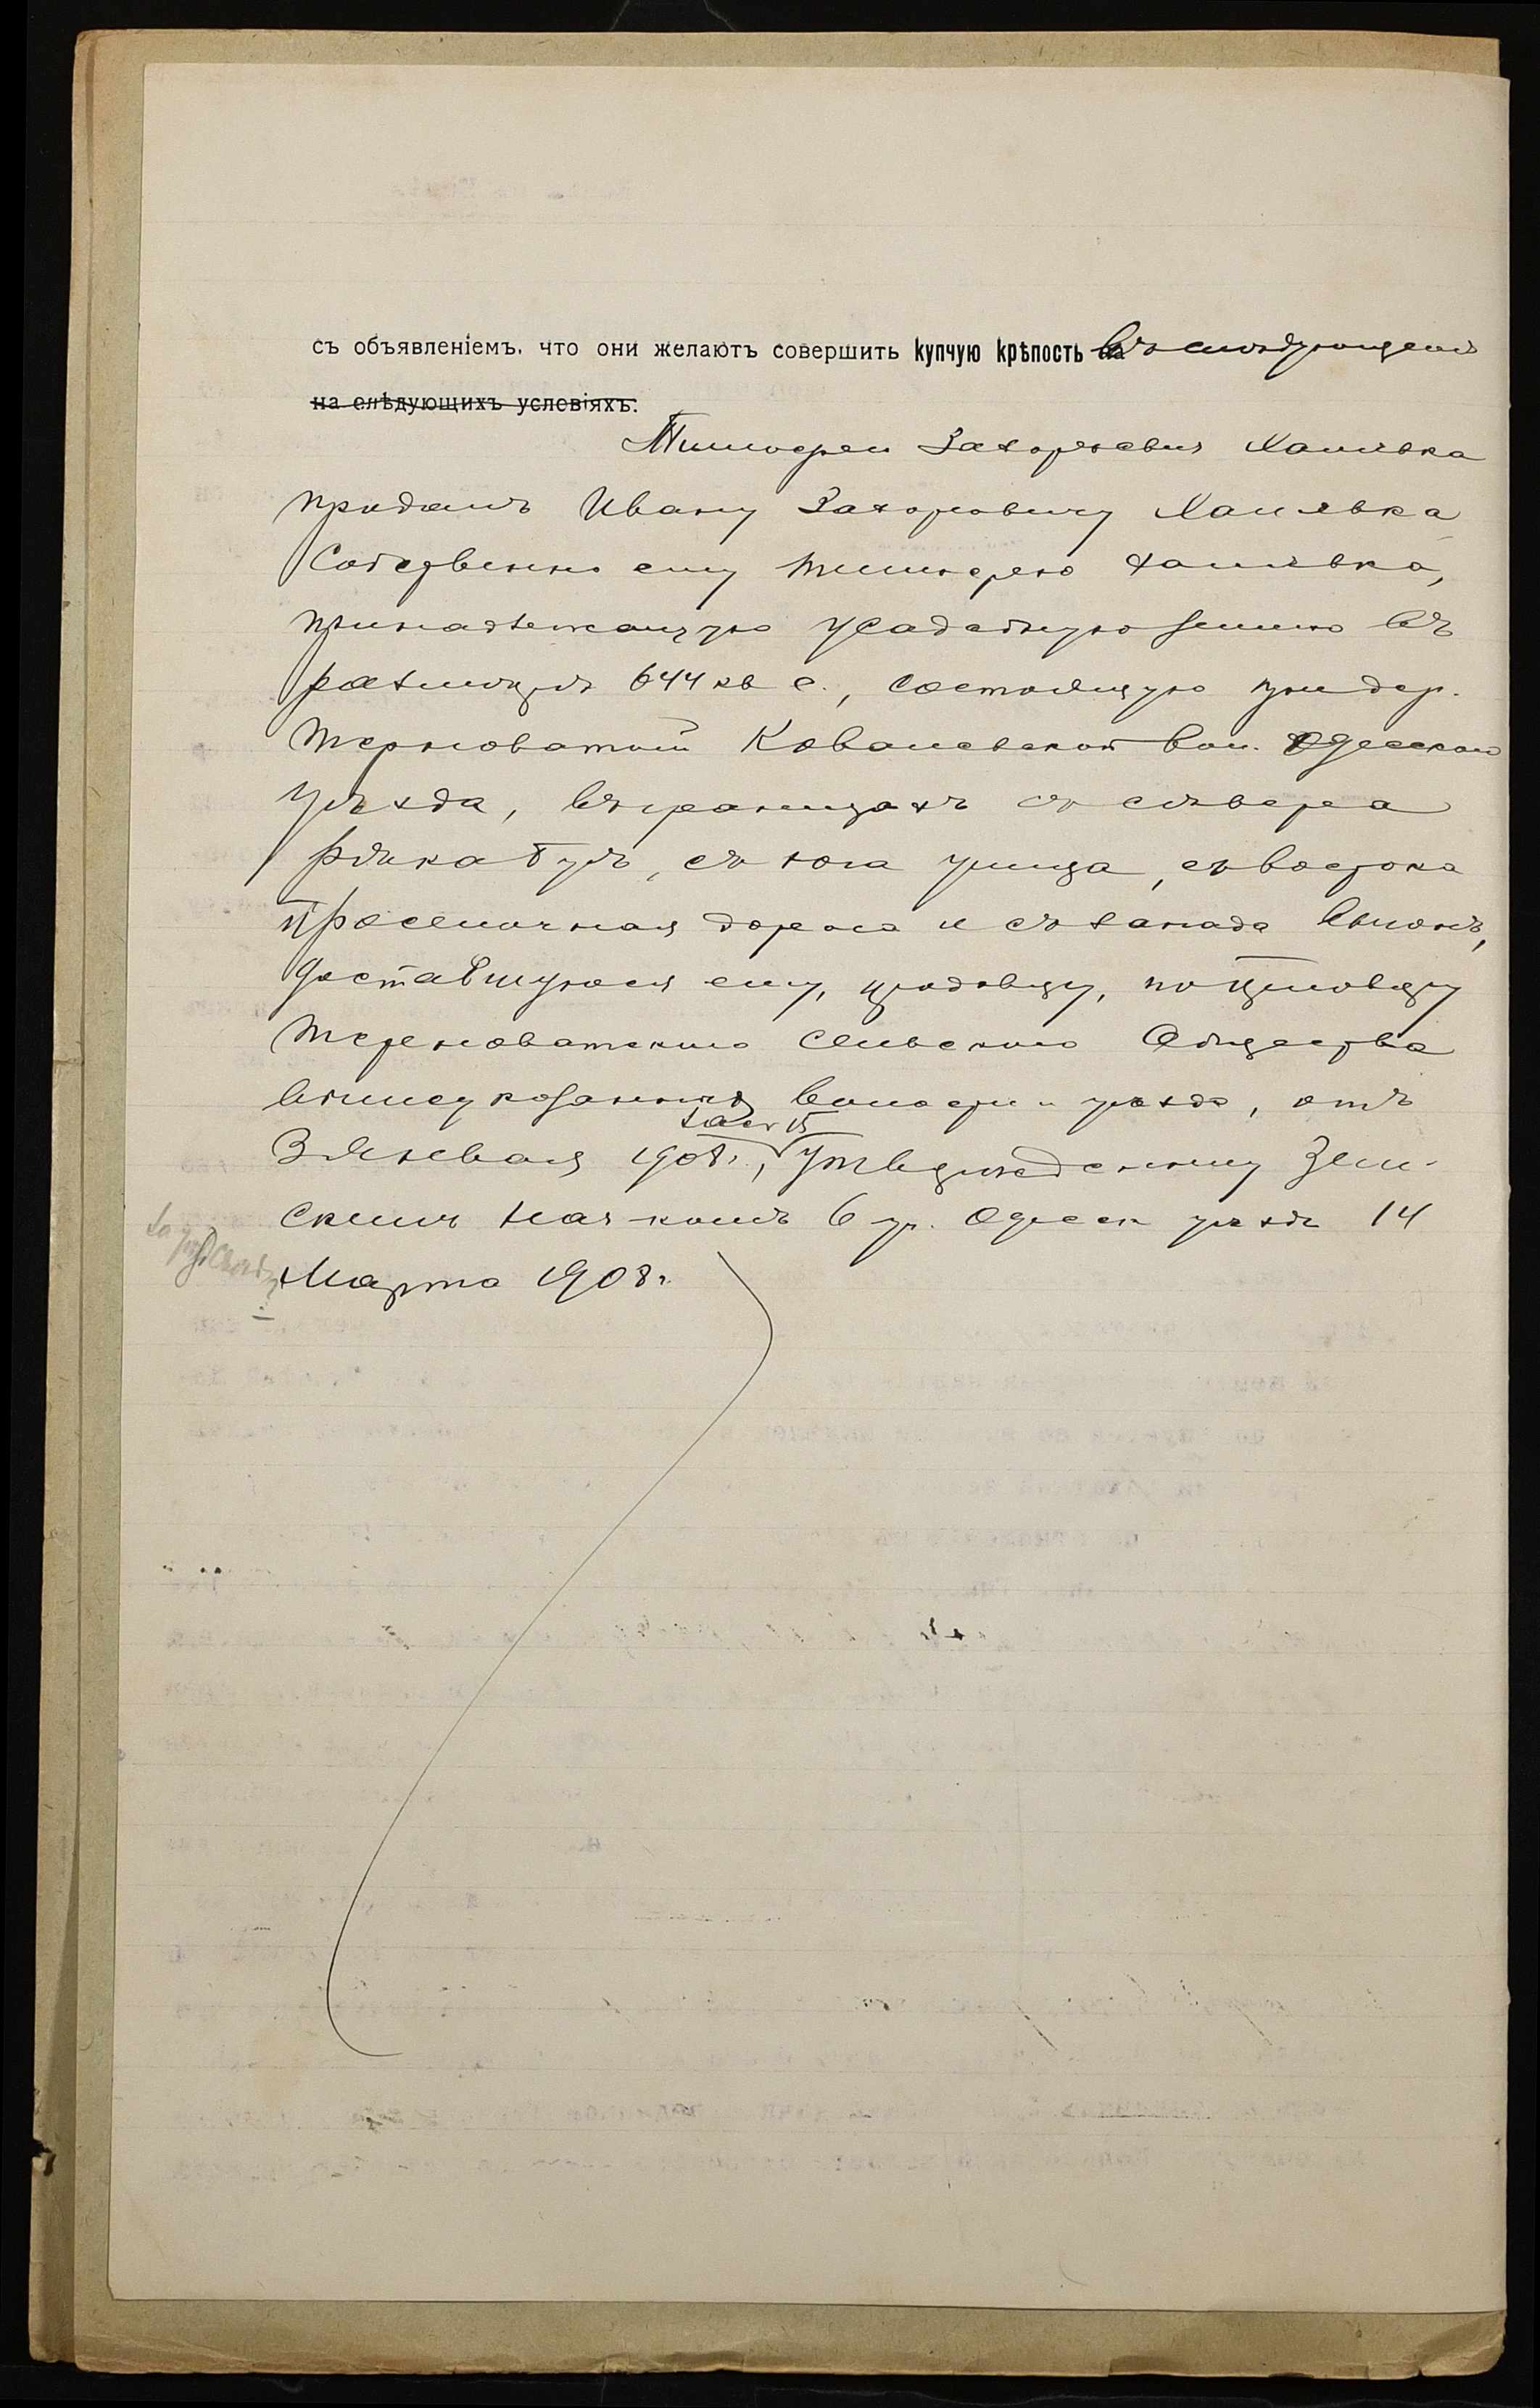 съ объявленіемъ, что они желаютъ совершить купчую крѣпость на въ слѣдующемъ
на слѣдующихъ условіяхъ:
Тимофей Захарьевич Халявка
продалъ Ивану Захаровичу Халявка
Собственно ему Тимофею Халявка,
принадлежащую усадебную землю въ
размѣрѣ 644 кв с., состоящую при дер.
Терноватой Ковалевской вол. Одесскаго
уѣзда, въ границахъ съ сѣвера
рѣка Бугъ, съ юга улица, съ востока
проселочная дорога и съ запада
доставшуюся ему, продавцу, по приговору
Терноватскаго Сельскаго Общества
вышеуказанныхъ волости и уѣзда, отъ
3 Января 1908 г., утвержденному Зем-
скимъ Нач-комъ 6 уч. Одесск уѣзда 14
Марта 1908 г.